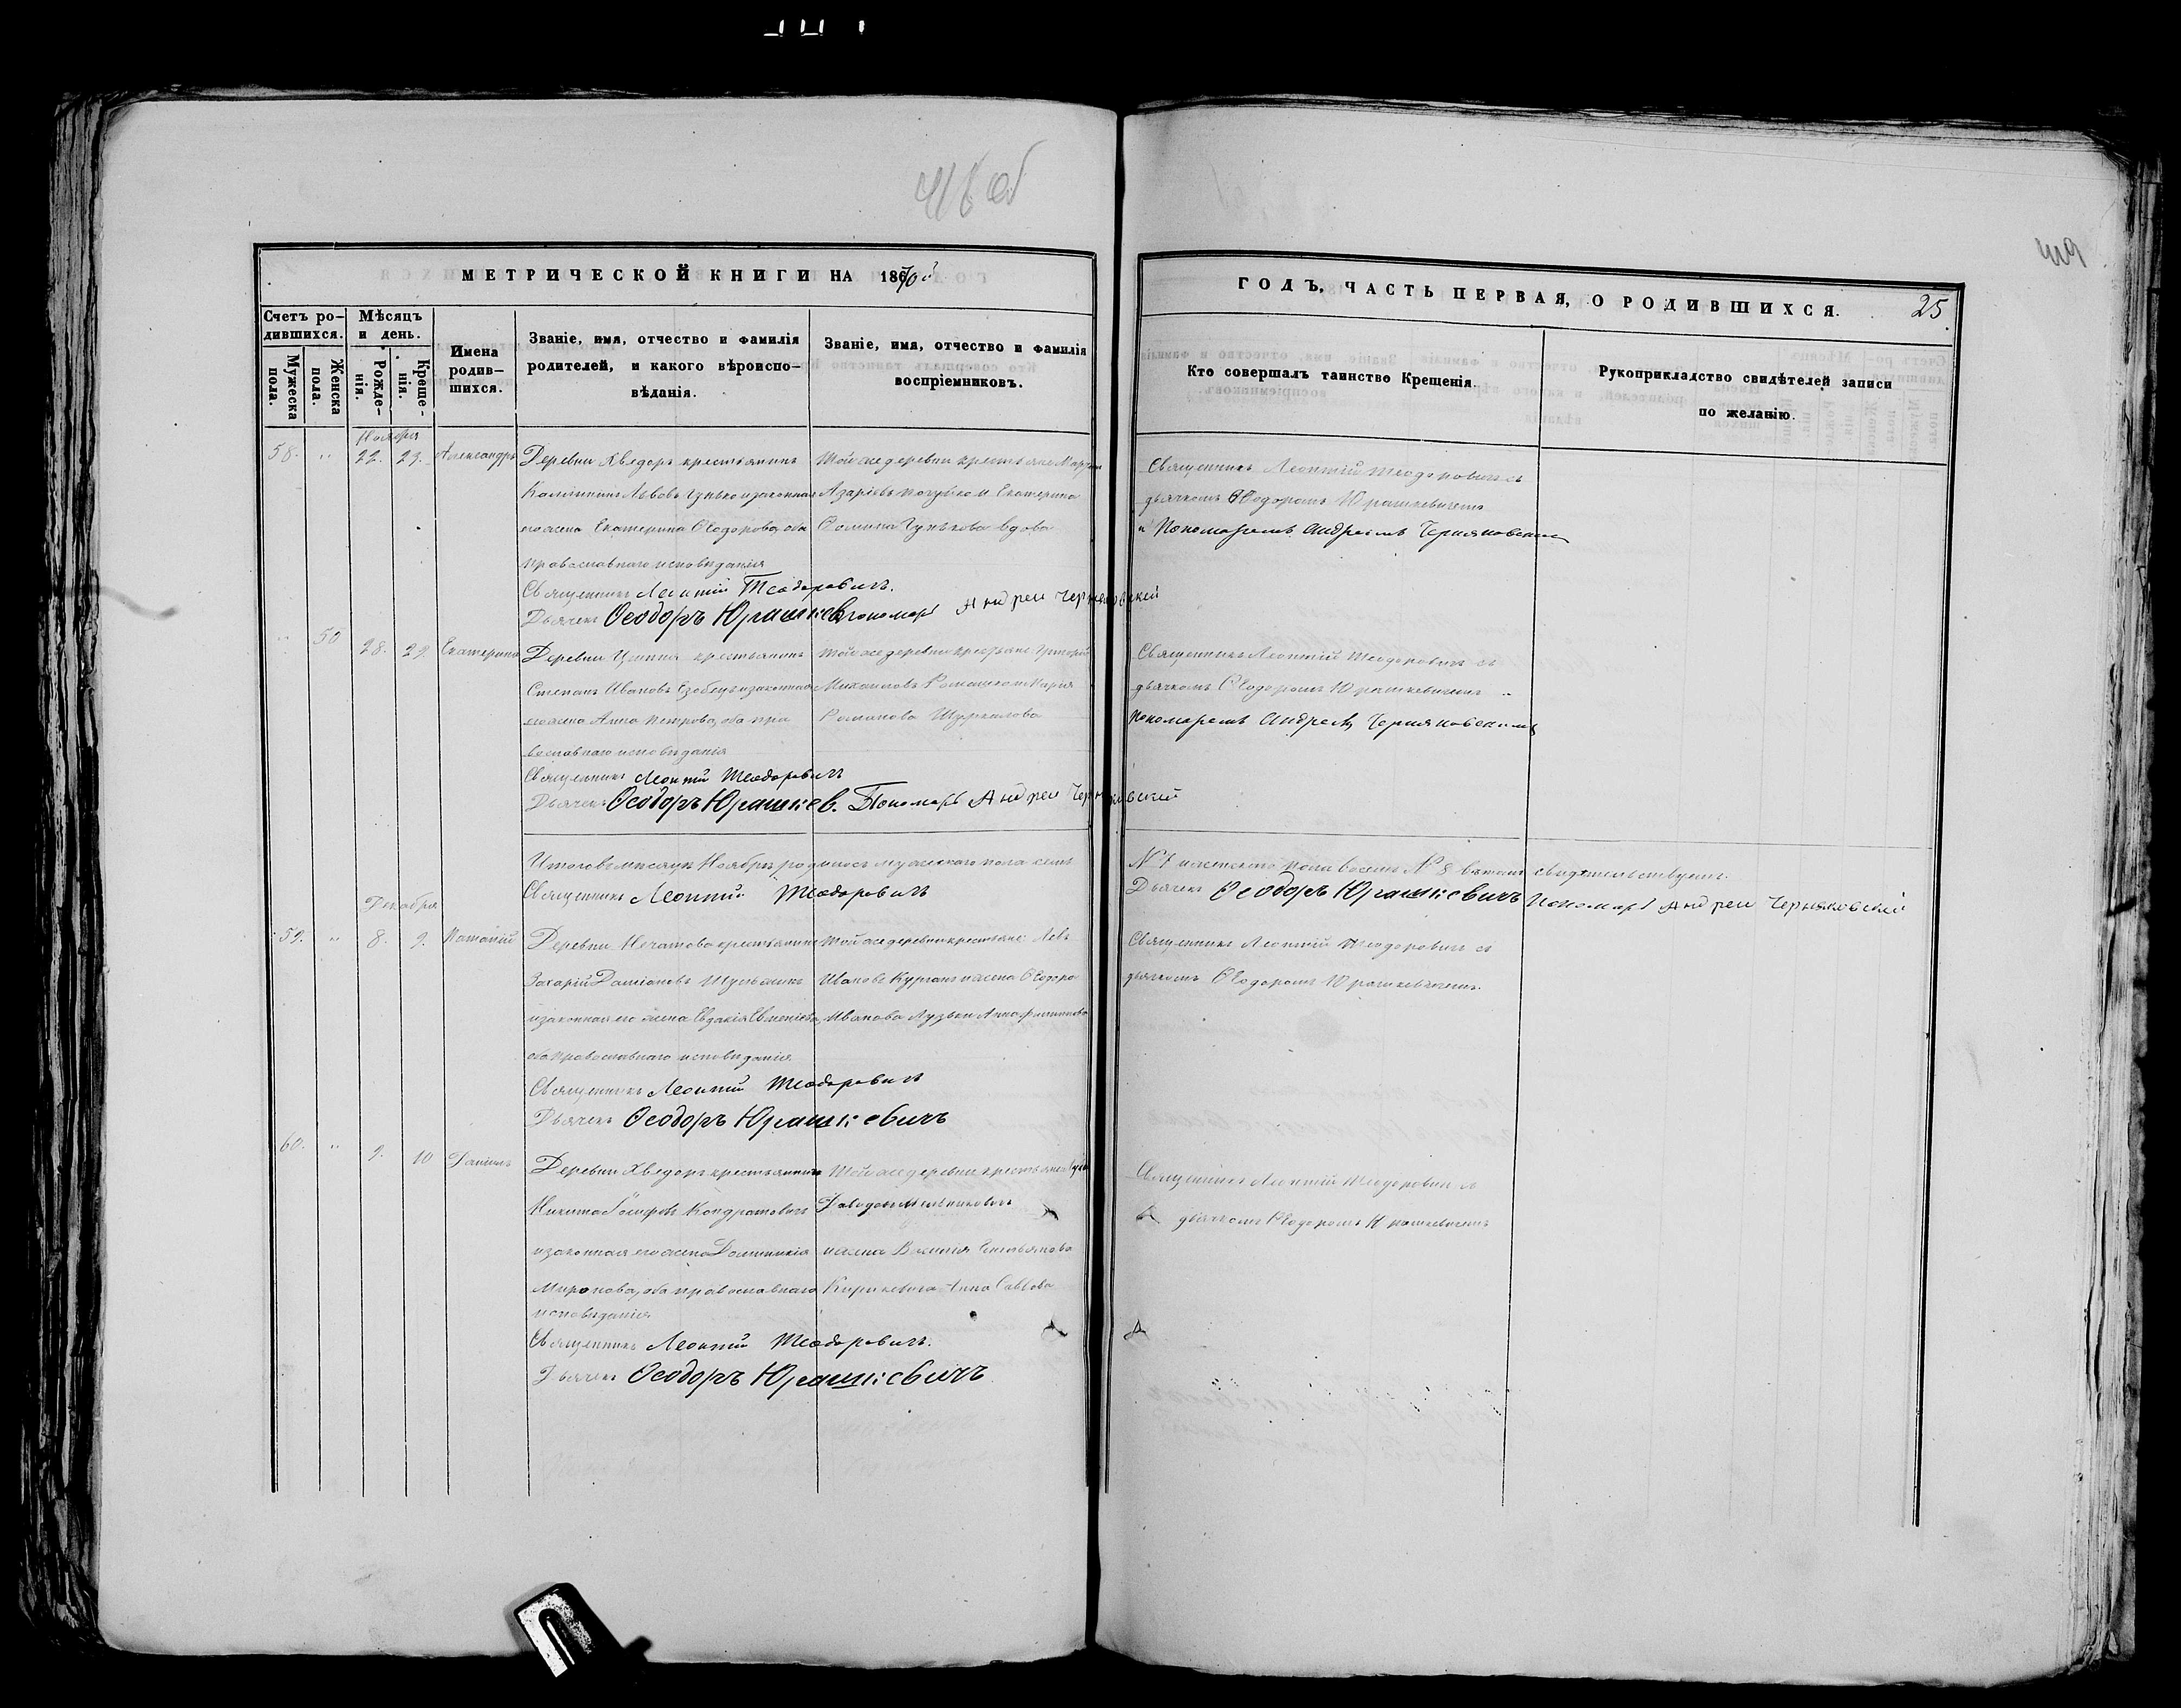 МЕТРИЧЕСКОЙ КНИГИ НА 1870й
Счетъ ро-
дившихся.
Мужеска
пола.
Женска
пола.
Мѣсяцъ
и день.
Рожде-
нія.
Креще-
нія.
Имена
родив-
шихся.
Званіе, имя, отчество и фамилія
родителей, и какого вѣроиспо-
вѣданія.
Званіе, имя, отчество и фамилія
воспріемниковъ.
Ноября
58. " 22. 23. Александръ
Деревни Хведоръ крестьянинъ
Львовъ и законная
его жена Екатерина Ѳеодорова, оба
православнаго исповѣданія
Священникъ Леонтій Теодоровичъ.
Дьячекъ Ѳеодоръ Юрашкев. Пономарь Андрей Черняковскій
Той же деревни крестьяне
Азаріевъ и Екатерина
Ѳомина вдова
" 50 28. 29. Екатерина
Деревни крестьянинъ
Степанъ Ивановъ и законная
его жена Анна Петрова, оба пра
вославнаго исповѣданія
Священникъ Леонтій Теодоровичъ
Дьячекъ Ѳеодоръ Юрашкев. Пономарь Андрей Черняковскій
Той же деревни крестьяне Григорій
Михаиловъ Марія
Романова
Итого въ мѣсяцѣ Ноябрѣ родилось мужескаго пола семь
Священникъ Леонтій Теодоровичъ
Декабря
59. " 8. 9. Потапій
Деревни Нечатово крестьянинъ
Захарій Даміановъ
и законная его жена Евдокія
оба православнаго исповѣданія
Священникъ Леонтій Теодоровичъ
Дьячекъ Ѳеодоръ Юрашкевичъ
Той же деревни крестьяне: Левъ
Ивановъ Курганъ и жена Ѳеодора
Иванова
60. " 9. 10 Даніилъ
Деревни Хведоръ крестьянинъ
Никита Іосифовъ Кондратовичъ
и законная его жена Доминикія
Миронова, оба православнаго
исповѣданія
Священникъ Леонтій Теодоровичъ.
Дьячекъ Ѳеодоръ Юрашкевичъ
Той же деревни крестьяне
Давидовъ Мельниковичъ
и жена
Анна Саввова
ГОДЪ, ЧАСТЬ ПЕРВАЯ, О РОДИВШИХСЯ. 25.
Кто совершалъ таинство Крещенія.
Рукоприкладство свидѣтелей записи
по желанію.
Священникъ Леонтій Теодоровичъ съ
дьячкомъ Ѳеодоромъ Юрашкевичемъ
и Пономаремъ Андреемъ Черняковскимъ
Священникъ Леонтій Теодоровичъ съ
дьячкомъ Ѳеодоромъ Юрашкевичемъ и
Пономаремъ Андреемъ Черняковскимъ
№ 7 и женскаго пола восемь № 8 въ томъ свидѣтельствуемъ.
Дьячекъ Ѳеодоръ Юрашкевичъ Пономарь Андрей Черняковскій
Священникъ Леонтій Теодоровичъ съ
дьячкомъ Ѳеодоромъ Юрашкевичемъ.
Священникъ Леонтій Теодоровичъ съ
дьячкомъ Ѳеодоромъ Юрашкевичемъ